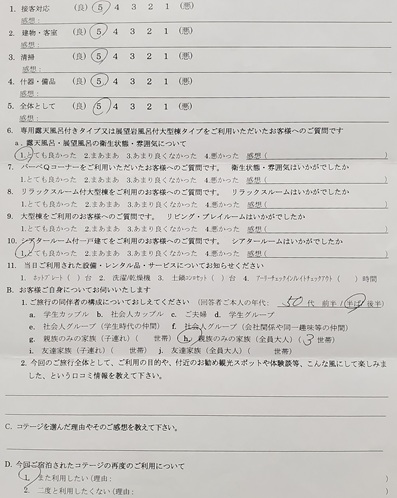 1. 接客対応 (良) 5 4 3 2 1 (悪)
感想:
2. 建物・客室 (良) 5 4 3 2 1 (悪)
感想:
3. 清掃 (良) 5 4 3 2 1 (悪)
感想:
4. 什器・備品 (良) 5 4 3 2 1 (悪)
感想:
5. 全体として (良) 5 4 3 2 1 (悪)
感想:
6. 専用露天風呂付きタイプ又は展望岩風呂付大型棟タイプをご利用いただいたお客様へのご質問です
a. 露天風呂・展望風呂の衛生状態・雰囲気について
1.とても良かった 2.まあまあ 3.あまり良くなかった 4.悪かった 感想( )
7. バーベQコーナーをご利用いただいたお客様へのご質問です。 衛生状態・雰囲気はいかがでしたか
1.とても良かった 2.まあまあ 3.あまり良くなかった 4.悪かった 感想( )
8. リラックスルーム付大型棟をご利用のお客様へのご質問です。 リラックスルームはいかがでしたか
1.とても良かった 2.まあまあ 3.あまり良くなかった 4.悪かった 感想( )
9. 大型棟をご利用のお客様へのご質問です。 リビング・プレイルームはいかがでしたか
1.とても良かった 2.まあまあ 3.あまり良くなかった 4.悪かった 感想( )
10. シアタールーム付一戸建てをご利用のお客様へのご質問です。 シアタールームはいかがでしたか
1.とても良かった 2.まあまあ 3.あまり良くなかった 4.悪かった 感想( )
11. 当日ご利用された設備・レンタル品・サービスについてお知らせください
1. ホットプレート( )台 2. 洗濯/乾燥機 3. 土鍋コンロセット( )台 4. アーリーチェックイン/レイトチェックアウト( )時間
B. お客様ご自身についてお伺いいたします
1. ご旅行の同伴者の構成についておしえてください (回答者ご本人の年代: 50代 前半 / 半ば 後半)
a. 学生カップル b. 社会人カップル c. ご夫婦 d. 学生グループ
e. 社会人グループ(学生時代の仲間) f. 社会人グループ(会社関係や同一趣味等の仲間)
g. 親族のみの家族(子連れ)( 世帯) h. 親族のみの家族(全員大人)(3世帯)
i. 友達家族(子連れ)( 世帯) j. 友達家族(全員大人)( 世帯)
2. 今回のご旅行全体として、ご利用の目的や、付近のお勧め観光スポットや体験談等、こんな風にして楽しみま
した、という口コミ情報を教えて下さい。
C. コテージを選んだ理由やそのご感想を教えて下さい。
D. 今回ご宿泊されたコテージの再度のご利用について
1. また利用したい(理由: )
2. 二度と利用したくない(理由: )